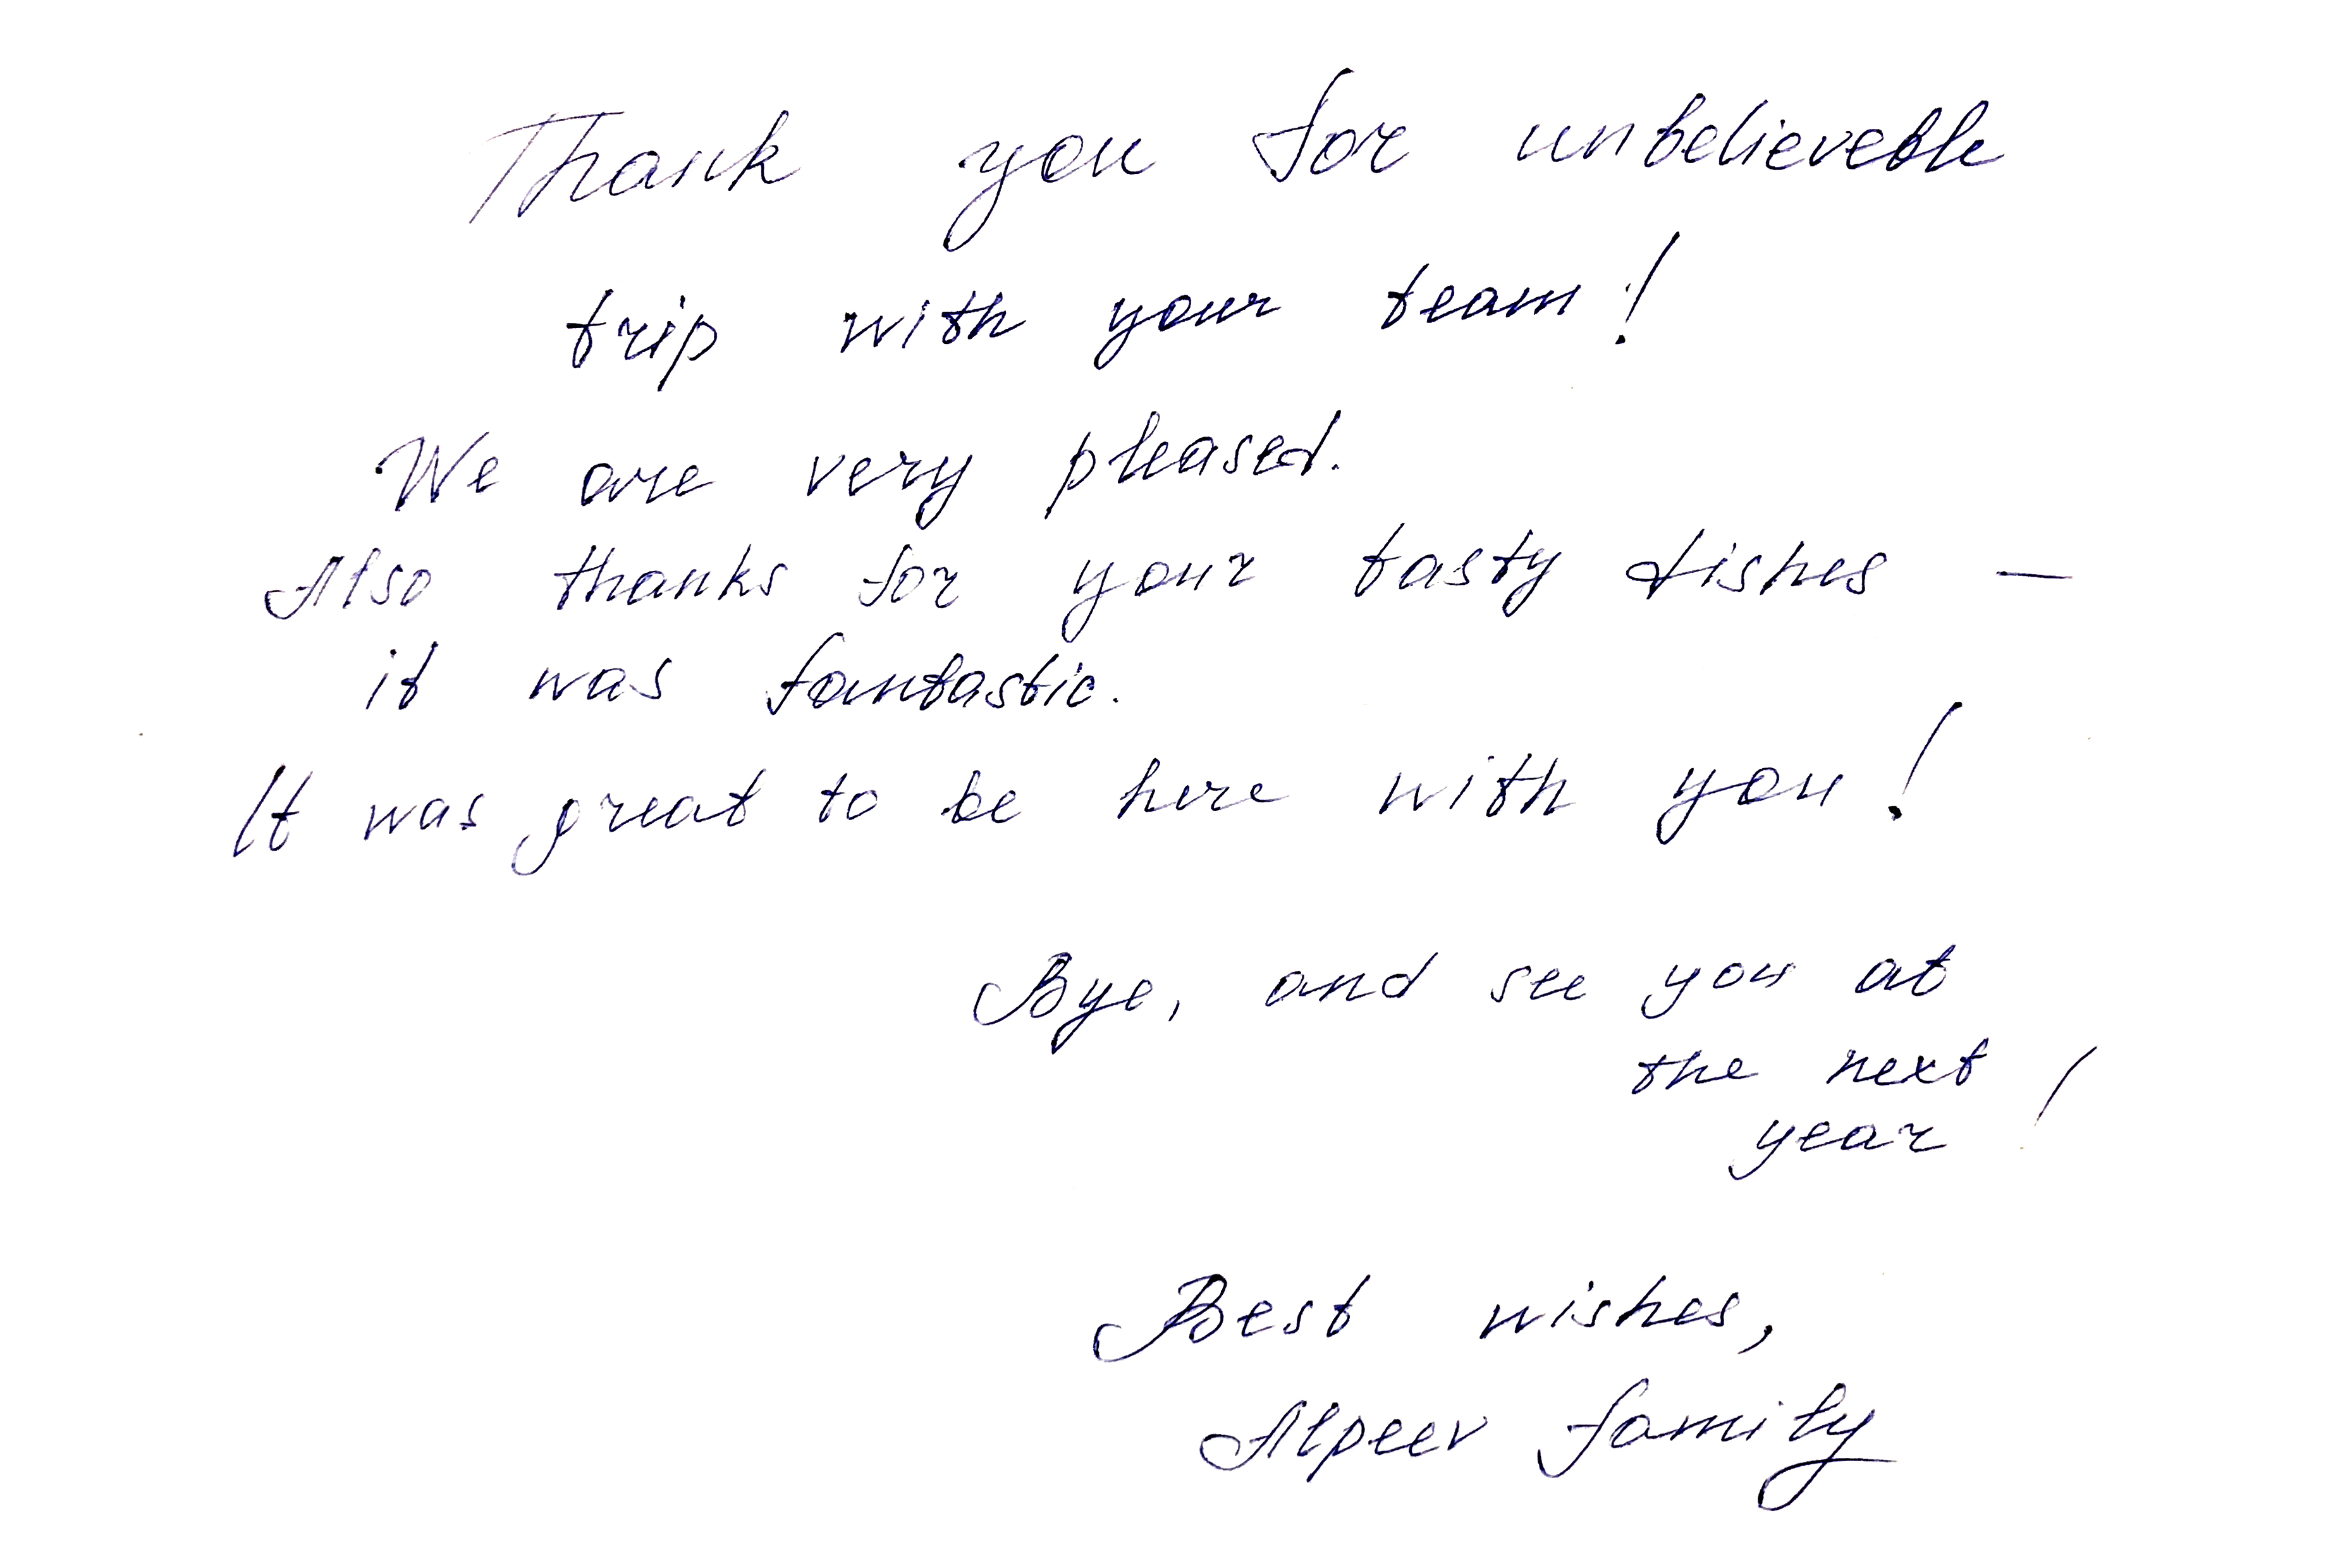 Thank you for unbelieveable
trip with your team!
We are very pleased.
Also thanks for your tasty dishes —
it was fantastic.
It was great to be here with you!
Bye, and see you at
the next
year!
Best wishes,
Alpeev family